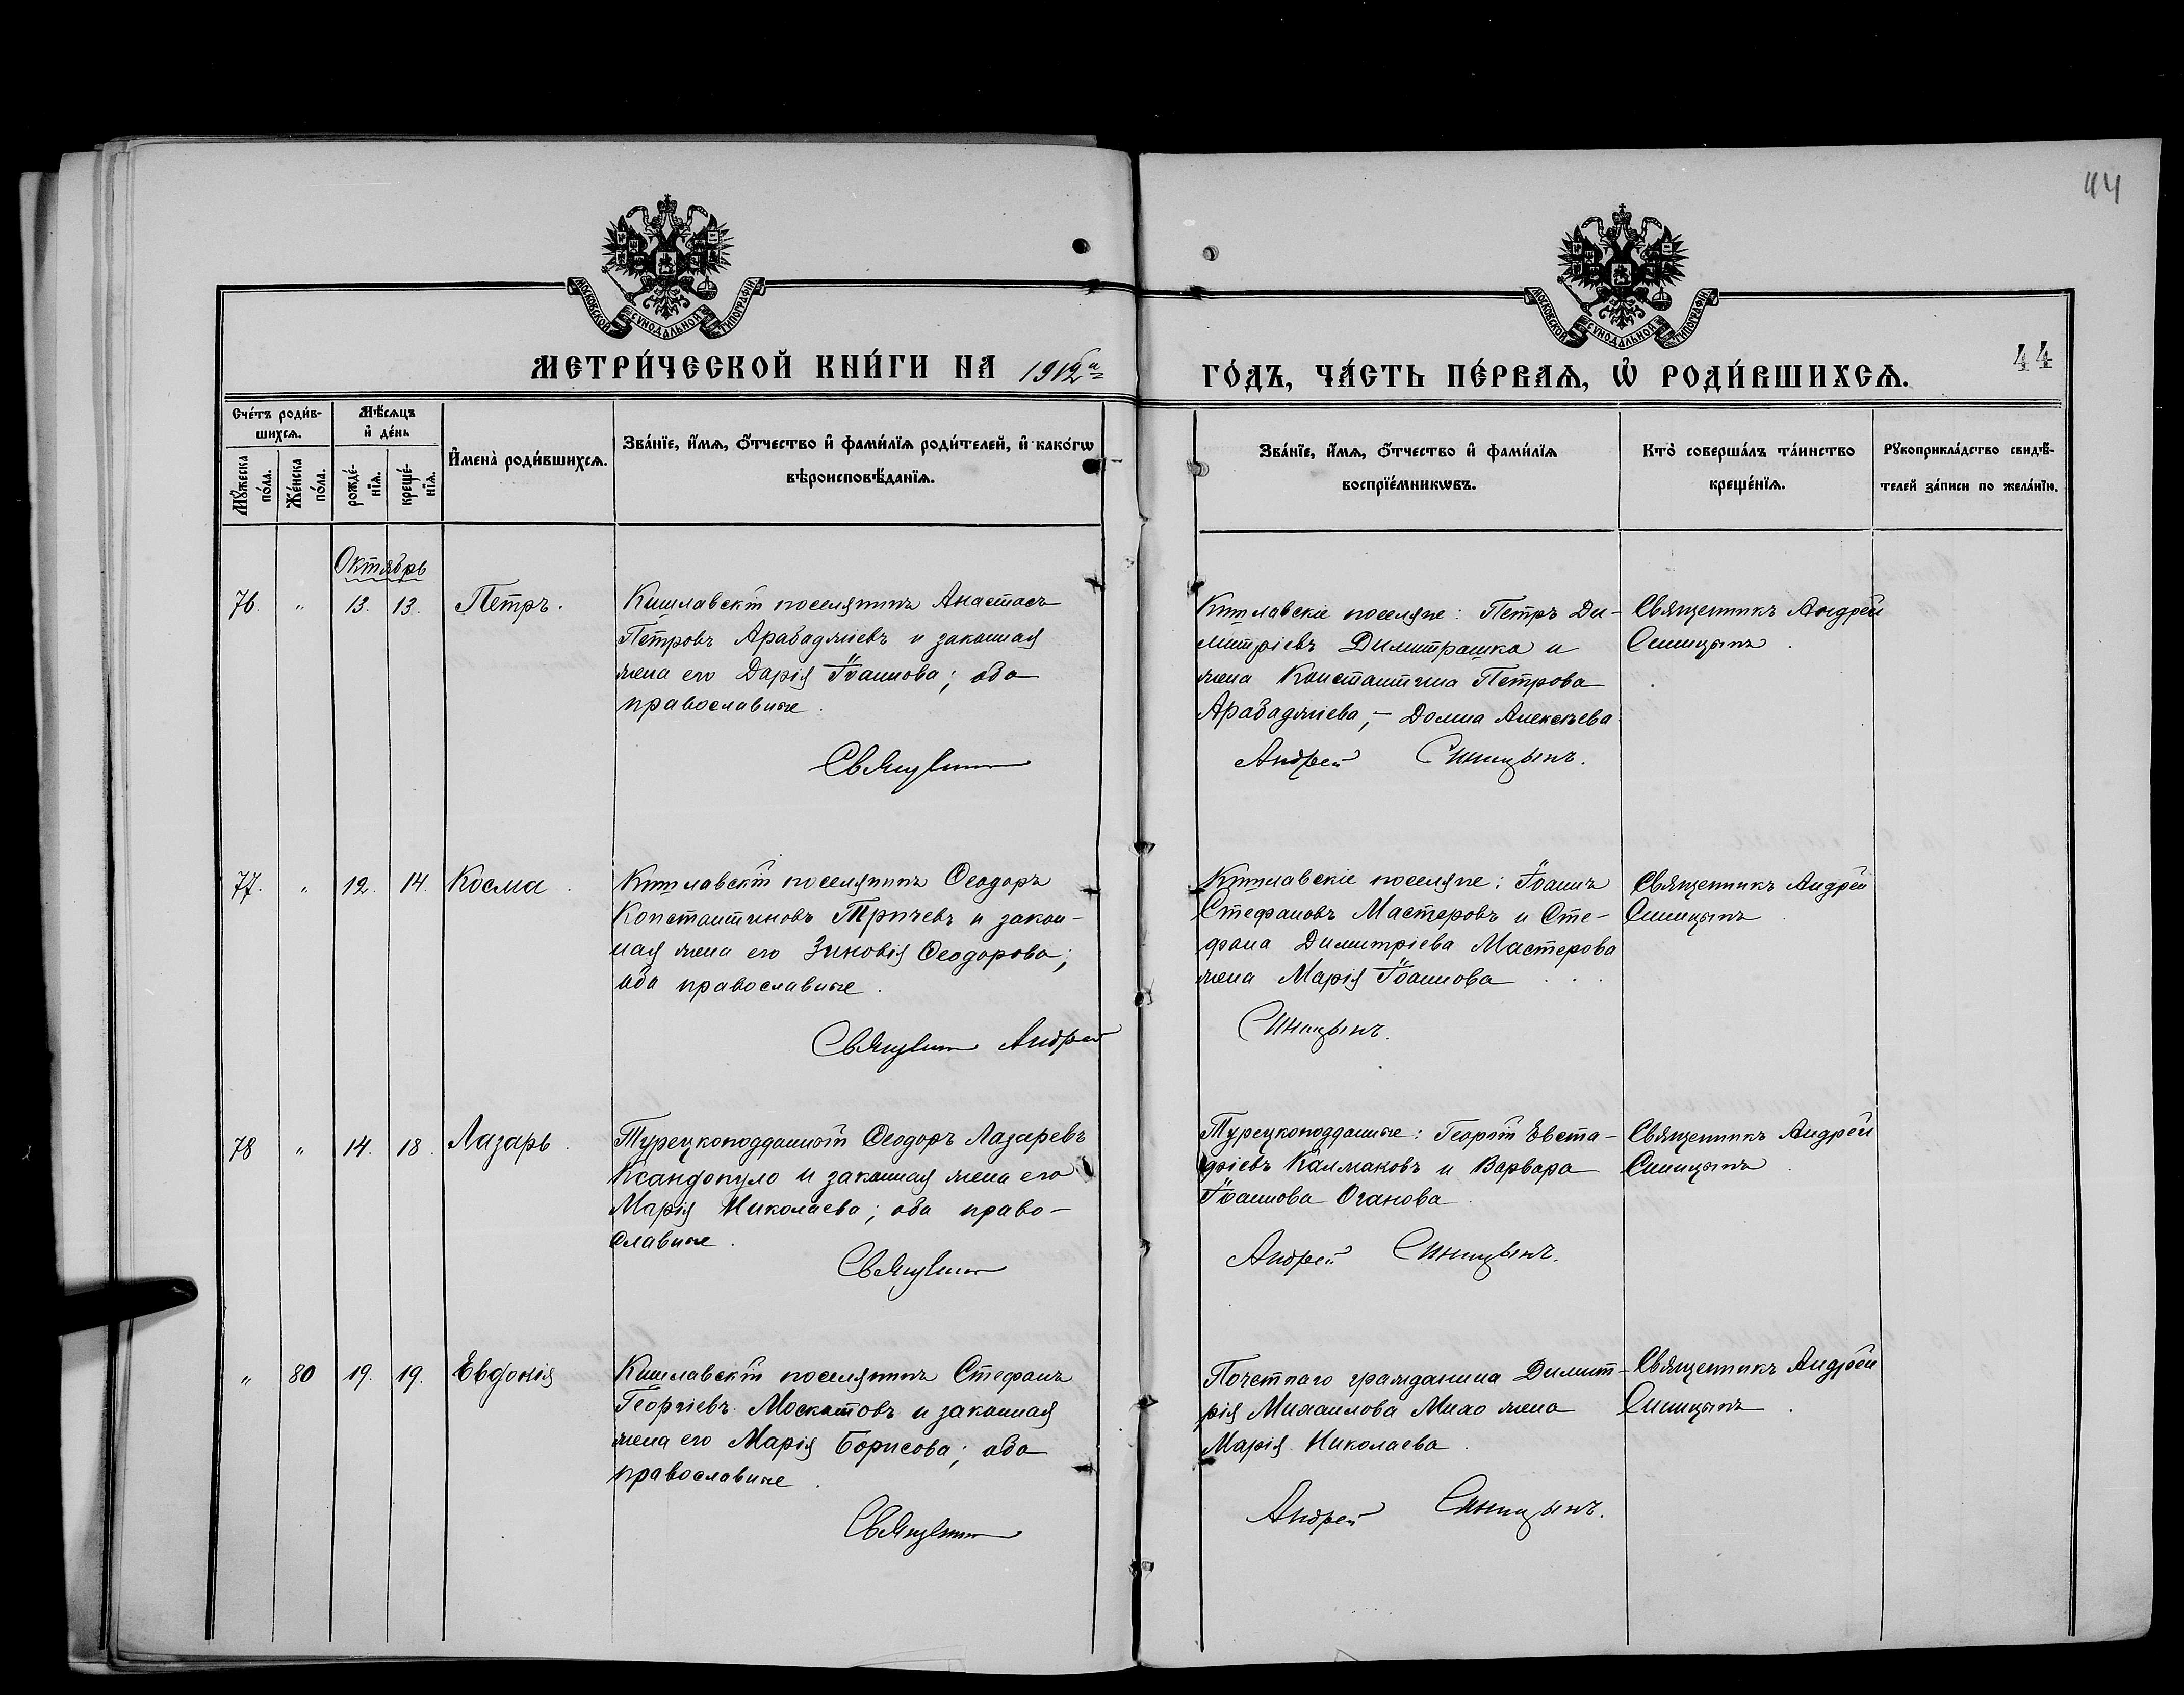 44
МОСКОВСКОЙ СѴНОДАЛЬНОЙ ТИПОГРАФІИ
МОСКОВСКОЙ СѴНОДАЛЬНОЙ ТИПОГРАФІИ
МЕТРИ́ЧЕСКОЙ КНИ́ГИ НА 1912й
ГО́ДЪ, ЧА́СТЬ ПЕ́РВАѦ, Ѡ҆ РОДИ́ВШИХСѦ.
44
Сче́тъ роди́в-
шихсѧ.
Мѣ́сѧцъ
и҆ де́нь
Мꙋ́жеска
по́ла.
Же́нска
по́ла.
рожде́-
нїѧ.
креще́-
нїѧ.
И҆мена̀ роди́вшихсѧ.
Зва́нїе, и҆́мѧ, ѻ҆́тчество и҆ фами́лїѧ роди́телей, и҆ како́гѡ
вѣроисповѣ́данїѧ.
Зва́нїе, и҆́мѧ, ѻ҆́тчество и҆ фами́лїѧ
воспрїе́мникѡвъ.
Кто̀ соверша́лъ та́инство
креще́нїѧ.
Рꙋкоприкла́дство свидѣ́-
телей за́писи по жела́нїю.
Октябрь
76. " 13. 13. Петръ.
Кишлавскій поселянинъ Анастасъ
Петровъ Арабаджіевъ и законная
жена его Дарія Іоаннова; оба
православные.
Кишлавскіе поселяне: Петръ Ди-
митріевъ Димитрашка и
жена Константина Петрова
Арабаджіева, – Домна Алексѣева
Священникъ Андрей
Синицынъ.
Священникъ Андрей Синицынъ.
77. " 12. 14. Косма.
Кишлавскій поселянинъ Ѳеодоръ
Константиновъ Тричевъ и закон-
ная жена его Зиновія Ѳеодорова;
оба православные.
Кишлавскіе поселяне: Іоаннъ
Стефановъ Мастеровъ и Сте-
фана Димитріева Мастерова
жена Марія Іоаннова
Священникъ Андрей
Синицынъ.
Священникъ Андрей Синицынъ.
78 " 14. 18. Лазарь.
Турецкоподданный Ѳеодоръ Лазаревъ
Ксандопуло и законная жена его
Марія Николаева; оба право-
славные.
Турецкоподданные: Георгій Евста-
фіевъ Калмаковъ и Варвара
Іоаннова Оганова.
Священникъ Андрей
Синицынъ.
Священникъ Андрей Синицынъ.
" 80 19. 19. Евдокія
Кишлавскій поселянинъ Стефанъ
Георгіевъ Москатовъ и законная
жена его Марія Борисова; оба
православные.
Почетнаго гражданина Димит-
рія Михаилова Михо жена
Марія Николаева.
Священникъ Андрей
Синицынъ.
Священникъ Андрей Синицынъ.